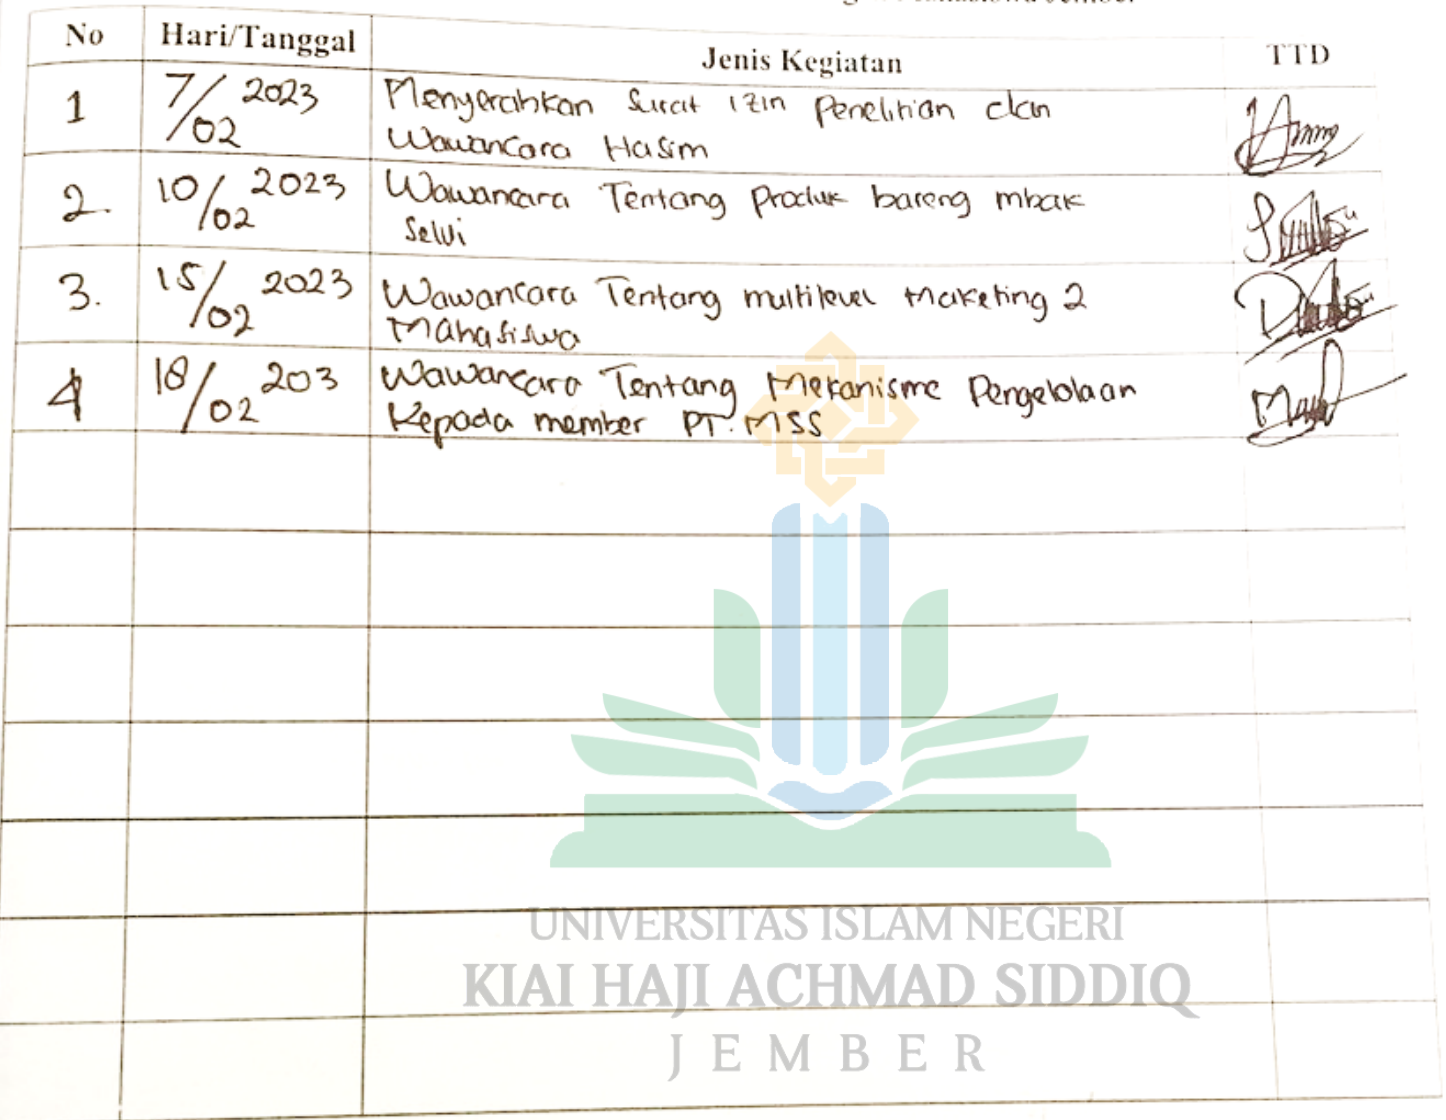 No Hari/Tanggal Jenis Kegiatan TTD
1 7/02 2023 Menyerahkan Surat izin Penelitian dan
Wawancara Hasim
2. 10/02 2023 Wawancara Tentang Produk bareng mbak
Selvi
3. 15/02 2023 Wawancara Tentang multilevel Maketing 2
Mahasiswa
4 18/02 203 Wawancara Tentang Mekanisme Pengelolaan
Kepada member PT. MSS
UNIVERSITAS ISLAM NEGERI
KIAI HAJI ACHMAD SIDDIQ
JEMBER